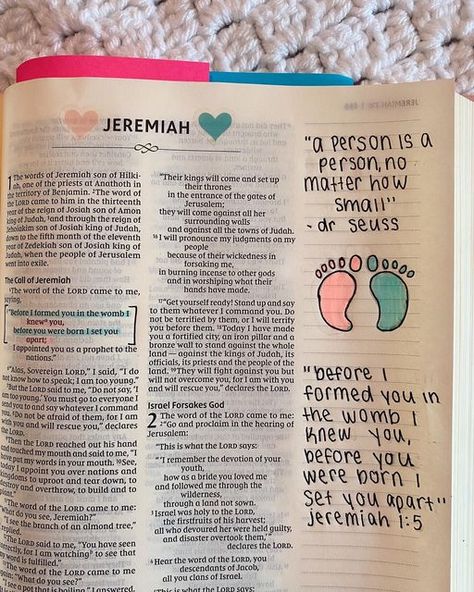 JEREMIAH
1 The words of Jeremiah son of Hilki-
ah, one of the priests at Anathoth in
the territory of Benjamin. ²The word of
the LORD came to him in the thirteenth
year of the reign of Josiah son of Amon
king of Judah, ³and through the reign of
Jehoiakim son of Josiah king of Judah,
down to the fifth month of the eleventh
year of Zedekiah son of Josiah king of
Judah, when the people of Jerusalem
went into exile.
The Call of Jeremiah
⁴The word of the LORD came to me,
saying,
⁵"Before I formed you in the womb I
knew you,
before you were born I set you
apart;
I appointed you as a prophet to the
nations."
⁶"Alas, Sovereign LORD," I said, "I do
not know how to speak; I am too young."
⁷But the LORD said to me, "Do not say, 'I
am too young.' You must go to everyone I
send you to and say whatever I command
you. ⁸Do not be afraid of them, for I am
with you and will rescue you," declares
the LORD.
⁹Then the LORD reached out his hand
and touched my mouth and said to me, "I
have put my words in your mouth. ¹⁰See,
today I appoint you over nations and
kingdoms to uproot and tear down, to
destroy and overthrow, to build and to
plant."
The word of the LORD came to me:
"What do you see, Jeremiah?"
"I see the branch of an almond tree,"
I replied.
The LORD said to me, "You have seen
correctly, for I am watching to see that
my word is fulfilled."
The word of the LORD came to me
again: "What do you see?"
"I see a pot that is boiling," I answered.
"Their kings will come and set up
their thrones
in the entrance of the gates of
Jerusalem;
they will come against all her
surrounding walls
and against all the towns of Judah.
¹⁶I will pronounce my judgments on my
people
because of their wickedness in
forsaking me,
in burning incense to other gods
and in worshiping what their
hands have made.
¹⁷"Get yourself ready! Stand up and say
to them whatever I command you. Do
not be terrified by them, or I will terrify
you before them. ¹⁸Today I have made
you a fortified city, an iron pillar and a
bronze wall to stand against the whole
land — against the kings of Judah, its
officials, its priests and the people of the
land. ¹⁹They will fight against you but
will not overcome you, for I am with you
and will rescue you," declares the LORD.
Israel Forsakes God
2 The word of the LORD came to me:
²"Go and proclaim in the hearing of
Jerusalem:
"This is what the LORD says:
"'I remember the devotion of your
youth,
how as a bride you loved me
and followed me through the
wilderness,
through a land not sown.
³Israel was holy to the LORD,
the firstfruits of his harvest;
all who devoured her were held guilty,
and disaster overtook them,'"
declares the LORD.
⁴Hear the word of the LORD, you
descendants of Jacob,
all you clans of Israel.
⁵This is what the LORD says:
"a person is a
person, no
matter how
small"
- dr seuss
"before I
formed you in
the womb I
knew you,
before you
were born I
set you apart"
jeremiah 1:5